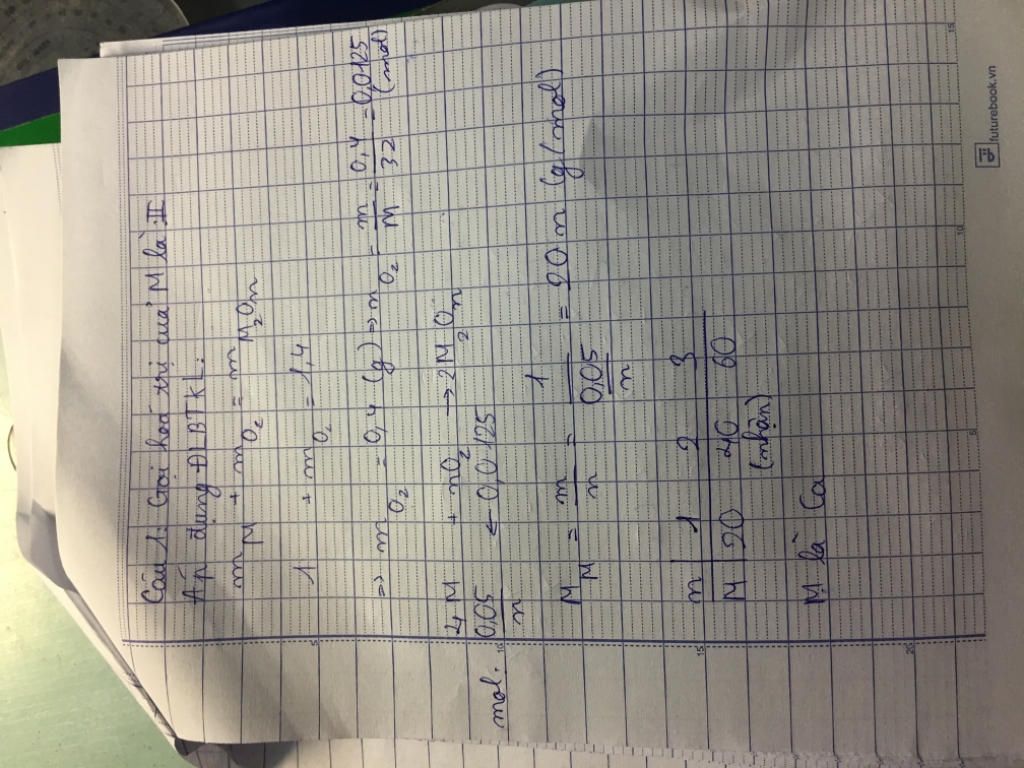 Câu 1: Gọi hoá trị của M là II
Áp dụng ĐLBTKL:
m_M + m_O₂ = m_M₂On
1 + m_O₂ = 1,4
=> m_O₂ = 0,4 (g) => n_O₂ = m/M = 0,4/32 = 0,0125 (mol)
4M + nO₂ → 2M₂On
mol: 0,05/n ← 0,0125
M_M = m/n = 1/(0,05/n) = 20n (g/mol)
n 1 2 3
M 20 40 60
(nhận)
M là Ca
5
10
15
20
5
10
15
futurebook.vn